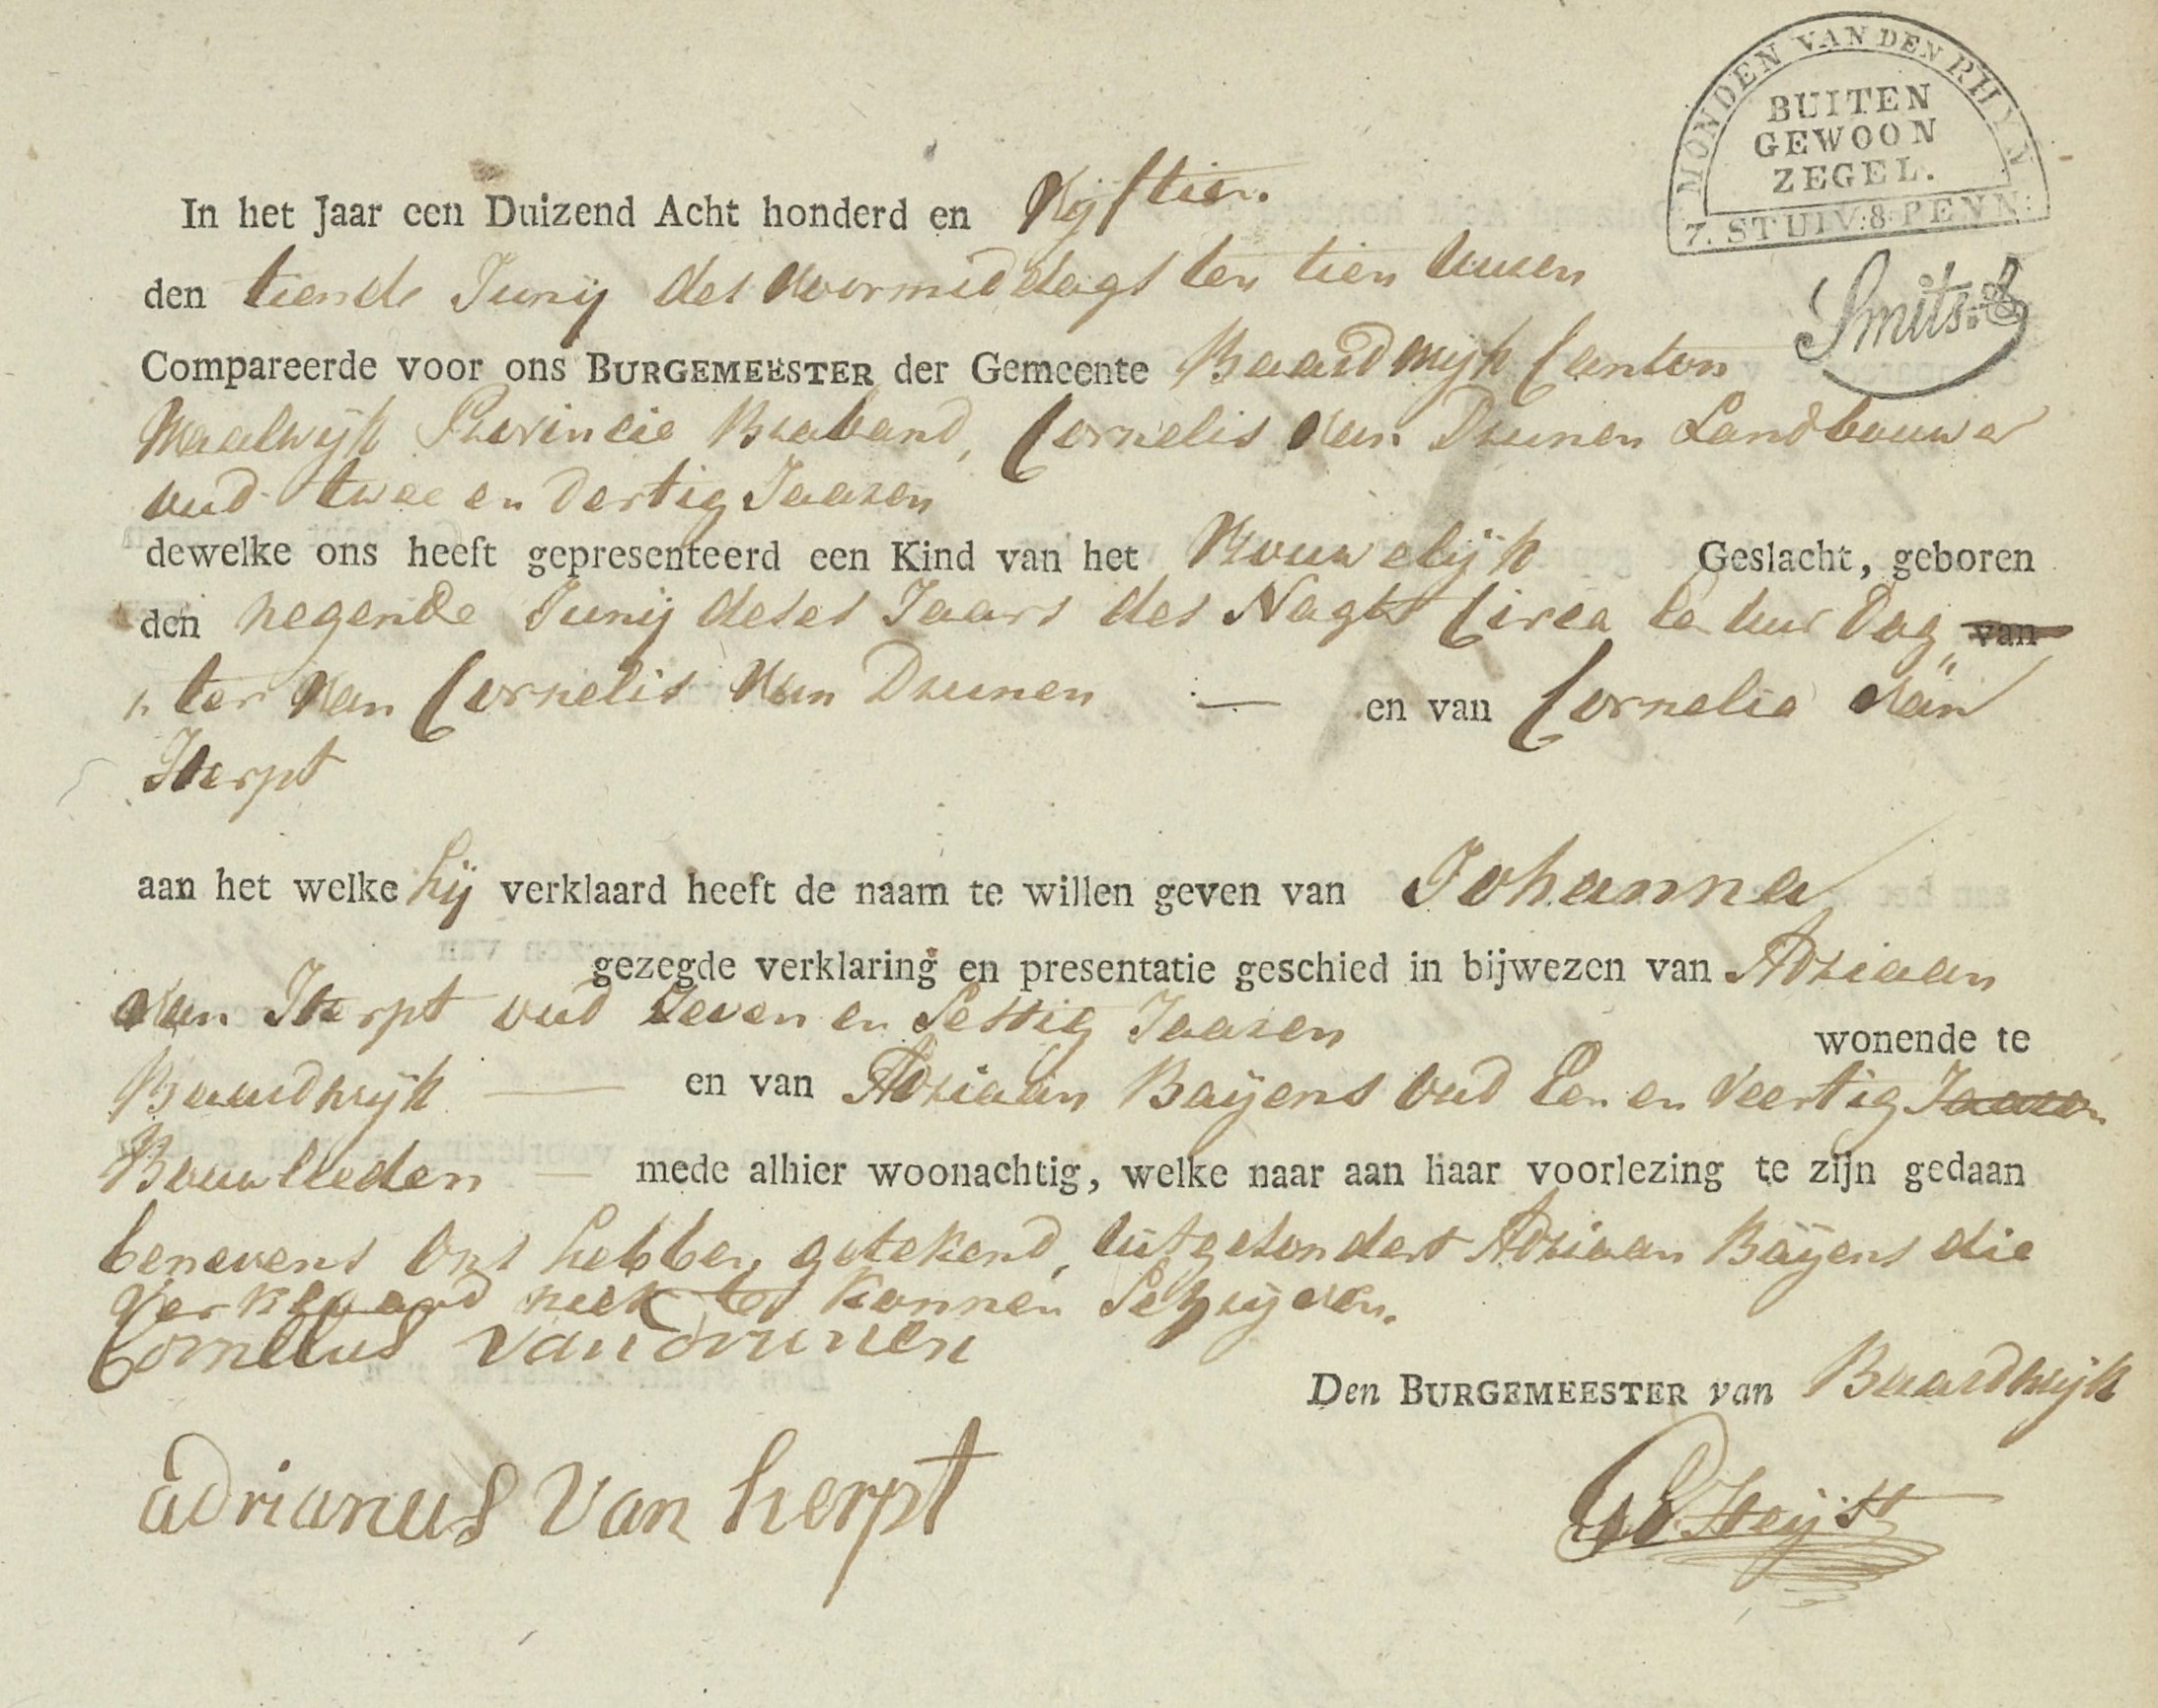 MONDEN VAN DEN RHYN
BUITEN
GEWOON
ZEGEL.
7. STUIV:8:PENN:
Smits.
In het Jaar een Duizend Acht honderd en Vyftien.
den tiende Junij des Voormiddags ten tien Uuren
Compareerde voor ons BURGEMEESTER der Gemeente Baardwijk Canton
Waalwijk Provincie Braband, Cornelis van Drunen Landbouwer
oud twee en dertig Jaaren
dewelke ons heeft gepresenteerd een Kind van het Vrouwelijk Geslacht, geboren
den negende Junij deses Jaars des Nagts Circa een uur Dog van
ter van Cornelis van Drunen — en van Cornelia van
Herpt
aan het welke hij verklaard heeft de naam te willen geven van Johanna
gezegde verklaring en presentatie geschied in bijwezen van Adriaan
van Herpt oud Seven en Sestig Jaaren wonende te
Baardwijk — en van Adriaan Baÿens oud Een en Veertig Jaaren
Bouwlieden — mede alhier woonachtig, welke naar aan haar voorlezing te zijn gedaan
benevens Ons hebben getekend, uitgesondert Adriaan Baÿens die
verklaard niet te konnen Schrijven.
Cornelius van drunen
Den BURGEMEESTER van Baardwijk
adrianus van herpt